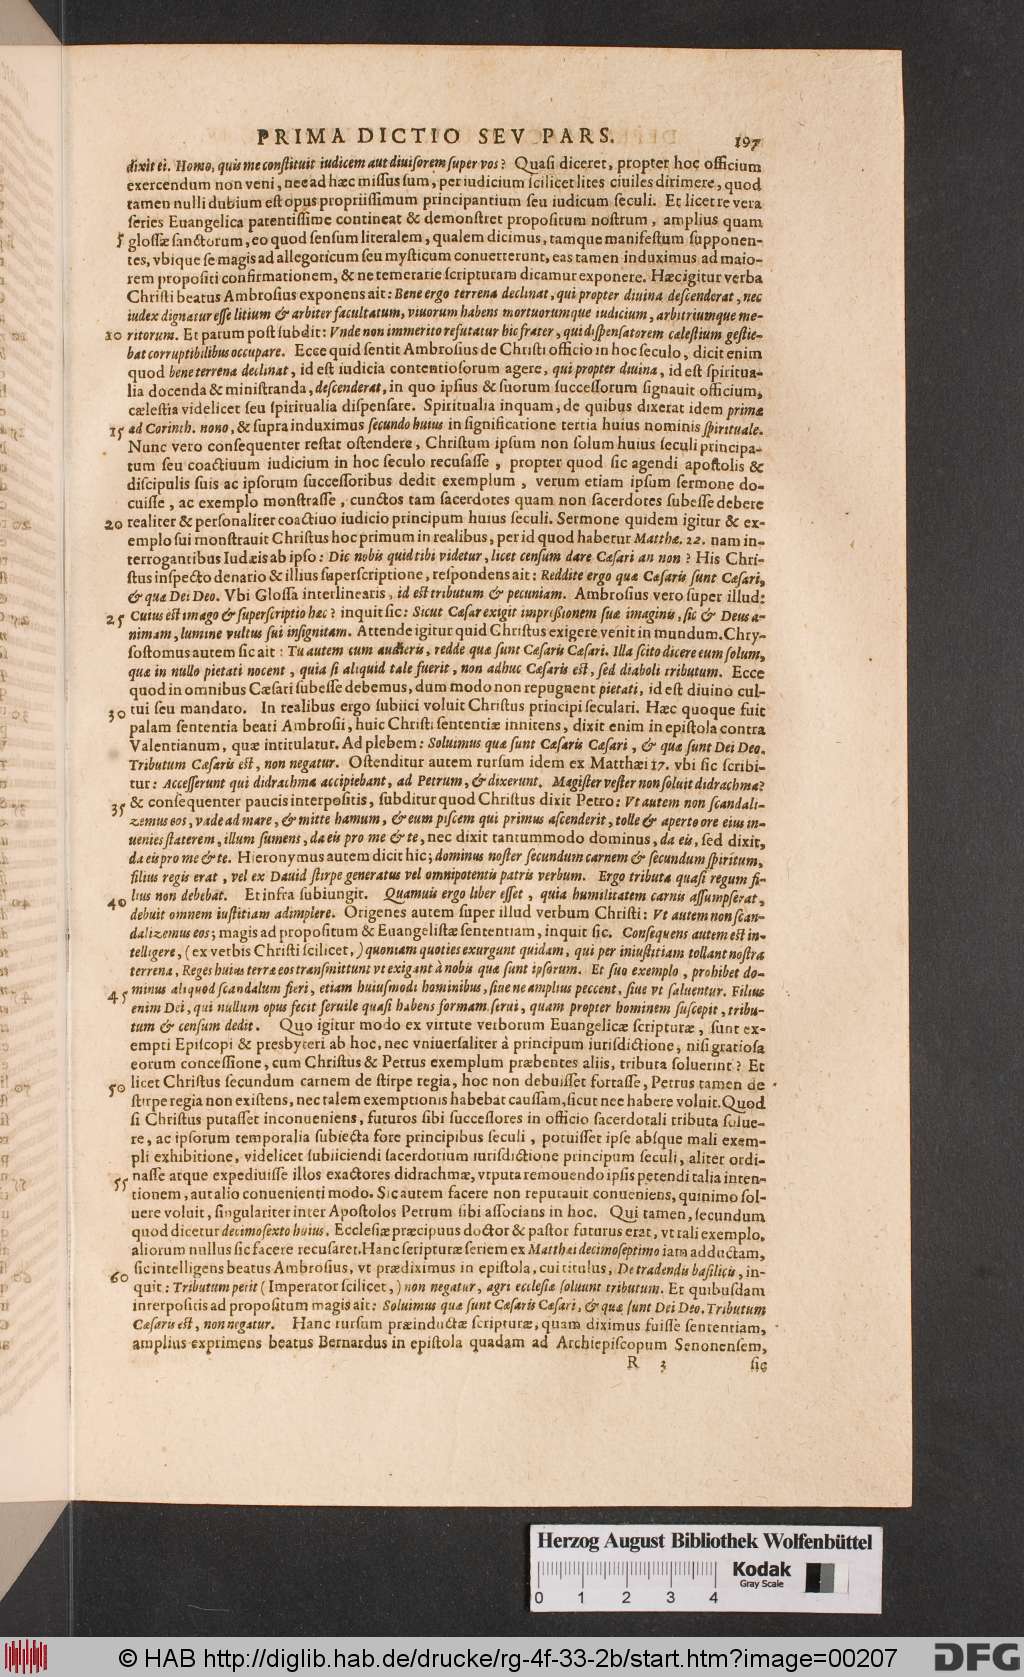 PRIMA DICTIO SEV PARS. 197
dixit ei. Homo, quis me constituit iudicem aut diuisorem super vos? Quasi diceret, propter hoc officium
exercendum non veni, nec ad hæc missus sum, per iudicium scilicet lites ciuiles dirimere, quod
tamen nulli dubium est opus propriissimum principantium seu iudicum seculi. Et licet re vera
series Euangelica patentissime contineat & demonstret propositum nostrum, amplius quam
5 glossæ sanctorum, eo quod sensum literalem, qualem dicimus, tamque manifestum supponen-
tes, vbique se magis ad allegoricum seu mysticum conuerterunt, eas tamen induximus ad maio-
rem propositi confirmationem, & ne temerarie scripturam dicamur exponere. Hæc igitur verba
Christi beatus Ambrosius exponens ait: Bene ergo terrena declinat, qui propter diuina descenderat, nec
iudex dignatur esse litium & arbiter facultatum, viuorum habens mortuorumque iudicium, arbitriumque me-
10 ritorum. Et parum post subdit: Vnde non immerito refutatur hic frater, qui dispensatorem cælestium gestie-
bat corruptibilibus occupare. Ecce quid sentit Ambrosius de Christi officio in hoc seculo, dicit enim
quod bene terrena declinat, id est iudicia contentiosorum agere, qui propter diuina, id est spiritua-
lia docenda & ministranda, descenderat, in quo ipsius & suorum successorum signauit officium,
cælestia videlicet seu spiritualia dispensare. Spiritualia inquam, de quibus dixerat idem primæ
15 ad Corinth. nono, & supra induximus secundo huius in significatione tertia huius nominis spirituale.
Nunc vero consequenter restat ostendere, Christum ipsum non solum huius seculi principa-
tum seu coactiuum iudicium in hoc seculo recusasse, propter quod sic agendi apostolis &
discipulis suis ac ipsorum successoribus dedit exemplum, verum etiam ipsum sermone do-
cuisse, ac exemplo monstrasse, cunctos tam sacerdotes quam non sacerdotes subesse debere
20 realiter & personaliter coactiuo iudicio principum huius seculi. Sermone quidem igitur & ex-
emplo sui monstrauit Christus hoc primum in realibus, per id quod habetur Matthæ. 22. nam in-
terrogantibus Iudæis ab ipso: Dic nobis quid tibi videtur, licet censum dare Cæsari an non? His Chri-
stus inspecto denario & illius superscriptione, respondens ait: Reddite ergo quæ Cæsaris sunt Cæsari,
& quæ Dei Deo. Vbi Glossa interlinearis, id est tributum & pecuniam. Ambrosius vero super illud:
25 Cuius est imago & superscriptio hæc? inquit sic: Sicut Cæsar exigit impressionem suæ imaginis, sic & Deus a-
nimam, lumine vultus sui insignitam. Attende igitur quid Christus exigere venit in mundum. Chry-
sostomus autem sic ait: Tu autem cum audieris, redde quæ sunt Cæsaris Cæsari. Illa scito dicere eum solum,
quæ in nullo pietati nocent, quia si aliquid tale fuerit, non adhuc Cæsaris est, sed diaboli tributum. Ecce
quod in omnibus Cæsari subesse debemus, dum modo non repugnent pietati, id est diuino cul-
30 tui seu mandato. In realibus ergo subiici voluit Christus principi seculari. Hæc quoque fuit
palam sententia beati Ambrosii, huic Christi sententiæ innitens, dixit enim in epistola contra
Valentianum, quæ intitulatur. Ad plebem: Soluimus quæ sunt Cæsaris Cæsari, & quæ sunt Dei Deo.
Tributum Cæsaris est, non negatur. Ostenditur autem rursum idem ex Matthæi 17. vbi sic scribi-
tur: Accesserunt qui didrachma accipiebant, ad Petrum, & dixerunt. Magister vester non soluit didrachma?
35 & consequenter paucis interpositis, subditur quod Christus dixit Petro: Vt autem non scandali-
zemus eos, vade ad mare, & mitte hamum, & eum piscem qui primus ascenderit, tolle & aperto ore eius in-
uenies staterem, illum sumens, da eis pro me & te, nec dixit tantummodo dominus, da eis, sed dixit,
da eis pro me & te. Hieronymus autem dicit hic; dominus noster secundum carnem & secundum spiritum,
filius regis erat, vel ex Dauid stirpe generatus vel omnipotentis patris verbum. Ergo tributa quasi regum fi-
40 lius non debebat. Et infra subiungit. Quamuis ergo liber esset, quia humilitatem carnis assumpserat,
debuit omnem iustitiam adimplere. Origenes autem super illud verbum Christi: Vt autem non scan-
dalizemus eos; magis ad propositum & Euangelistæ sententiam, inquit sic. Consequens autem est in-
telligere, (ex verbis Christi scilicet,) quoniam quoties exurgunt quidam, qui per iniustitiam tollant nostra
terrena, Reges huius terræ eos transmittunt vt exigant à nobis quæ sunt ipsorum. Et suo exemplo, prohibet do-
45 minus aliquod scandalum fieri, etiam huiusmodi hominibus, siue ne amplius peccent, siue vt saluentur. Filius
enim Dei, qui nullum opus fecit seruile quasi habens formam serui, quam propter hominem suscepit, tribu-
tum & censum dedit. Quo igitur modo ex virtute verborum Euangelicæ scripturæ, sunt ex-
empti Episcopi & presbyteri ab hoc, nec vniuersaliter à principum iurisdictione, nisi gratiosa
eorum concessione, cum Christus & Petrus exemplum præbentes aliis, tributa soluerint? Et
50 licet Christus secundum carnem de stirpe regia, hoc non debuisset fortasse, Petrus tamen de
stirpe regia non existens, nec talem exemptionis habebat caussam, sicut nec habere voluit. Quod
si Christus putasset inconueniens, futuros sibi successores in officio sacerdotali tributa solue-
re, ac ipsorum temporalia subiecta fore principibus seculi, potuisset ipse absque mali exem-
pli exhibitione, videlicet subiiciendi sacerdotium iurisdictione principum seculi, aliter ordi-
55 nasse atque expediuisse illos exactores didrachmæ, vtputa remouendo ipsis petendi talia inten-
tionem, aut alio conuenienti modo. Sic autem facere non reputauit conueniens, quinimo sol-
uere voluit, singulariter inter Apostolos Petrum sibi associans in hoc. Qui tamen, secundum
quod dicetur decimosexto huius. Ecclesiæ præcipuus doctor & pastor futurus erat, vt tali exemplo,
aliorum nullus sic facere recusaret. Hanc scripturæ seriem ex Matthæi decimoseptimo iam adductam,
60 sic intelligens beatus Ambrosius, vt prædiximus in epistola, cui titulus, De tradendis basilicis, in-
quit: Tributum petit (Imperator scilicet,) non negatur, agri ecclesiæ soluunt tributum. Et quibusdam
interpositis ad propositum magis ait: Soluimus quæ sunt Cæsaris Cæsari, & quæ sunt Dei Deo. Tributum
Cæsaris est, non negatur. Hanc rursum præinductæ scripturæ, quam diximus fuisse sententiam,
amplius exprimens beatus Bernardus in epistola quadam ad Archiepiscopum Senonensem,
R 3 sic
Herzog August Bibliothek Wolfenbüttel
Kodak
Gray Scale
0 1 2 3 4
© HAB http://diglib.hab.de/drucke/rg-4f-33-2b/start.htm?image=00207
DFG